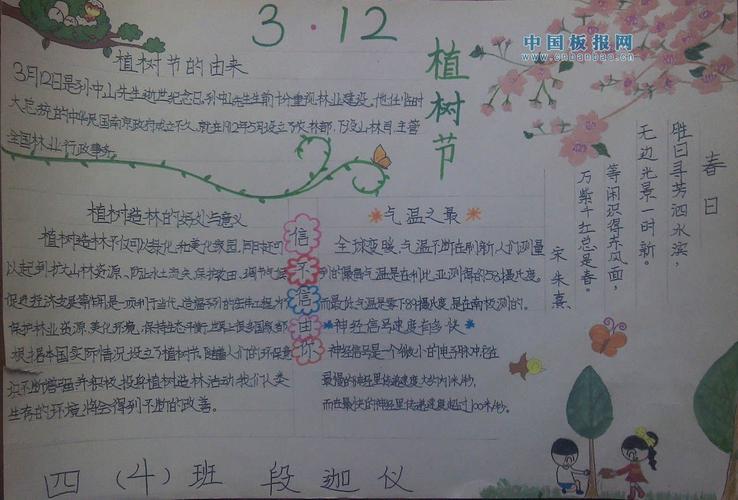 3·12
植树节
中国板报网
www.cnbanbao.cn
植树节的由来
3月12日是孙中山先生逝世纪念日。孙中山先生生前十分重视林业建设。他任临时
大总统的中华民国南京政府成立不久,就在1912年5月设立了农林部,下设山林司,主管
全国林业行政事务。
植树造林的好处与意义
植树造林不仅可以绿化和美化家园,同时还可
以起到扩大山林资源、防止水土流失、保护农田、调节气候
促进经济发展等作用,是一项利于当代、造福子孙的宏伟工程。为了
保护林业资源、美化环境、保持生态平衡,世界上很多国家都
根据本国实际情况设立了植树节。随着人们的环保意
识不断增强并积极投身植树造林活动,我们人类
生存的环境将会得到不断的改善。
信不信由你
气温之最
全球变暖,气温不断在刷新人们测量
到的最高气温是在利比亚测得的58摄氏度。
而最低气温是零下89摄氏度,是在南极测的。
神经信号速度有多快
神经信号是一个微小的电子脉冲它在
最慢的神经里传递速度大约为1米/秒,
而在最快的神经里传递速度超过100米/秒。
春日
胜日寻芳泗水滨,
无边光景一时新。
等闲识得东风面,
万紫千红总是春。
宋 朱熹
四(4)班 段迦仪